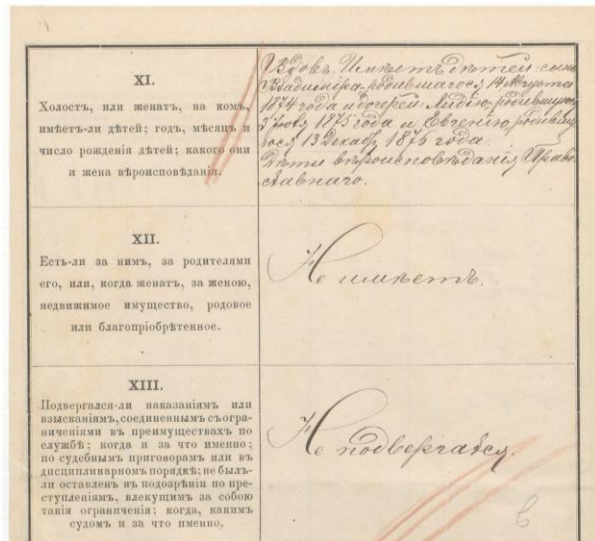 XI.
Холостъ, или женатъ, на комъ,
имѣетъ-ли дѣтей; годъ, мѣсяцъ и
число рожденія дѣтей; какого они
и жена вѣроисповѣданія.
Вдовъ. Имѣетъ дѣтей: сына
Владиміра, родившагося 14 Августа
1874 года и дочерей: Лидію, родившуюся
3 1875 года и Евгенію, родившу
юся 13 Декабр. 1876 года.
Дѣти вѣроисповѣданія Право
славнаго.
XII.
Есть-ли за нимъ, за родителями
его, или, когда женатъ, за женою,
недвижимое имущество, родовое
или благопріобрѣтенное.
Не имѣетъ.
XIII.
Подвергался-ли наказаніямъ или
взысканіямъ, соединеннымъ съ огра-
ниченіями въ преимуществахъ по
службѣ; когда и за что именно;
по судебнымъ приговорамъ или въ
дисциплинарномъ порядкѣ; не былъ-
ли оставленъ въ подозрѣніи по пре-
ступленіямъ, влекущимъ за собою
такія ограниченія; когда, какимъ
судомъ и за что именно.
Не подвергался.